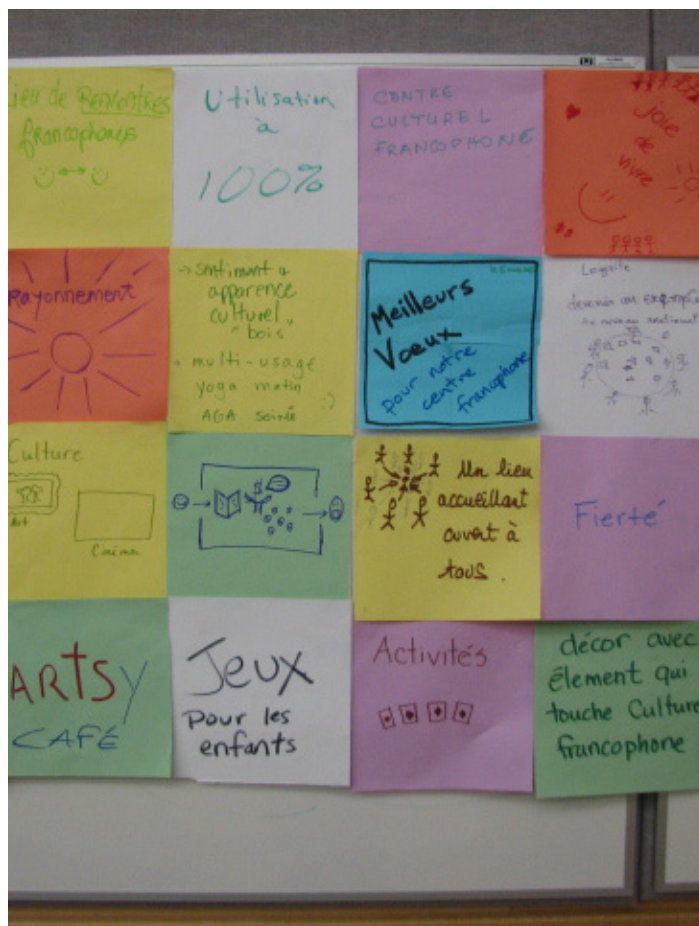 Lieu de Rencontres
francophones
Utilisation
à
100%
CENTRE
CULTUREL
FRANCOPHONE
joie
de
vivre
Rayonnement
→ sentiment &
apparence
culturel
"bois"
→ multi-usage
yoga matin
AGA soirée :)
Meilleurs
Voeux
pour notre
centre
francophone
devenir un exemple
au niveau national
Culture
Art
Cinéma
Un lieu
accueillant
ouvert à
tous.
Fierté
ARTSY
CAFÉ
Jeux
Pour les
enfants
Activités
décor avec
élement qui
touche Culture
francophone